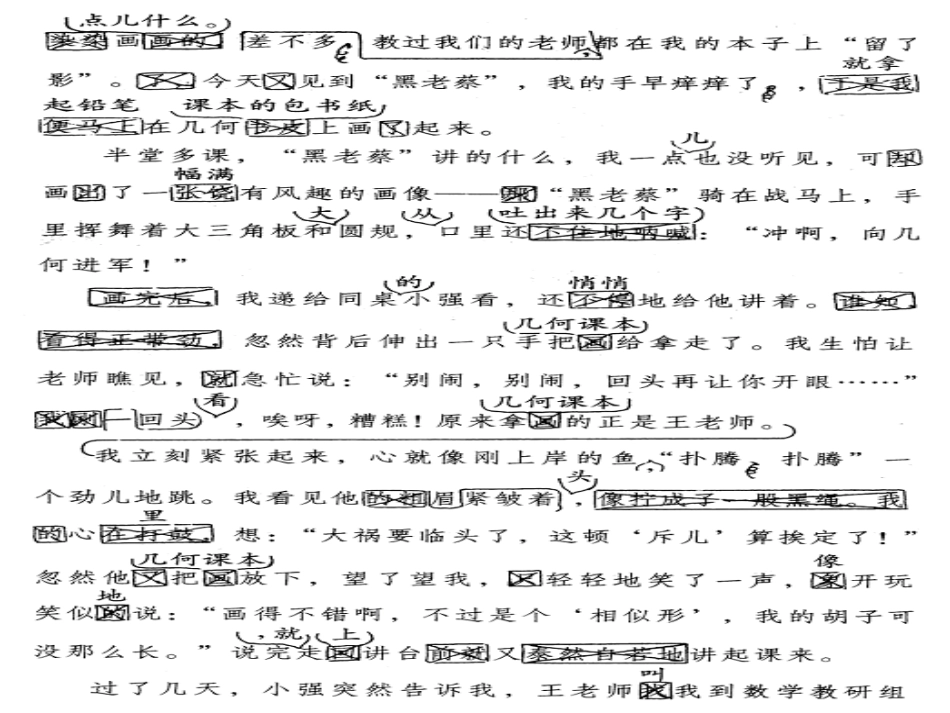 点儿什么。
画画的，差不多，教过我们的老师都在我的本子上“留了
就拿
影”。今天又见到“黑老蔡”，我的手早痒痒了，于是我
起铅笔 课本的包书纸
便马上在几何书皮上画了起来。
儿
半堂多课，“黑老蔡”讲的什么，我一点也没听见，可却
幅满
画出了一张饶有风趣的画像——“黑老蔡”骑在战马上，手
大 从 吐出来几个字
里挥舞着大三角板和圆规，口里还不住地呐喊：“冲啊，向几
何进军！”
的 悄悄
画完后，我递给同桌小强看，还不停地给他讲着。谁知，
几何课本
看得正带劲，忽然背后伸出一只手把画给拿走了。我生怕让
老师瞧见，就急忙说：“别闹，别闹，回头再让你开眼……”
看 几何课本
我刚一回头，唉呀，糟糕！原来拿画的正是王老师。
我立刻紧张起来，心就像刚上岸的鱼，“扑腾、扑腾”一
头
个劲儿地跳。我看见他的粗眉紧皱着，像拧成了一股黑绳。我
里
的心在打鼓，想：“大祸要临头了，这顿‘斥儿’算挨定了！”
几何课本 像
忽然他又把画放下，望了望我，又轻轻地笑了一声，象开玩
地
笑似的说：“画得不错啊，不过是个‘相似形’，我的胡子可
，就 上
没那么长。”说完走回讲台前就又泰然自若地讲起课来。
叫
过了几天，小强突然告诉我，王老师找我到数学教研组